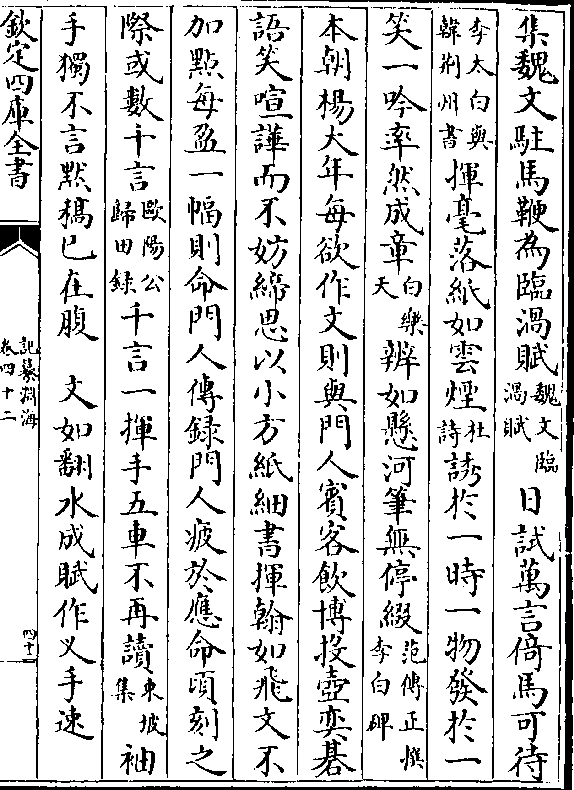 集魏文駐馬鞭為臨渦賦魏文臨渦賦 日試萬言倚馬可待
李太白與韓荆州書揮毫落紙如雲煙杜詩誘於一時一物發於一
笑一吟率然成章白樂天辨如懸河筆無停綴范傳正撰李白碑
本朝楊大年每欲作文則與門人賓客飲博投壺奕碁
語笑喧譁而不妨締思以小方紙細書揮翰如飛文不
加點每盈一幅則命門人傳録門人疲於應命頃刻之
際或數千言歐陽公歸田録千言一揮手五車不再讀東坡集袖
手獨不言黙稿已在腹 文如翻水成賦作乂手速
欽定四庫全書
記纂淵海
卷四十二
四十一